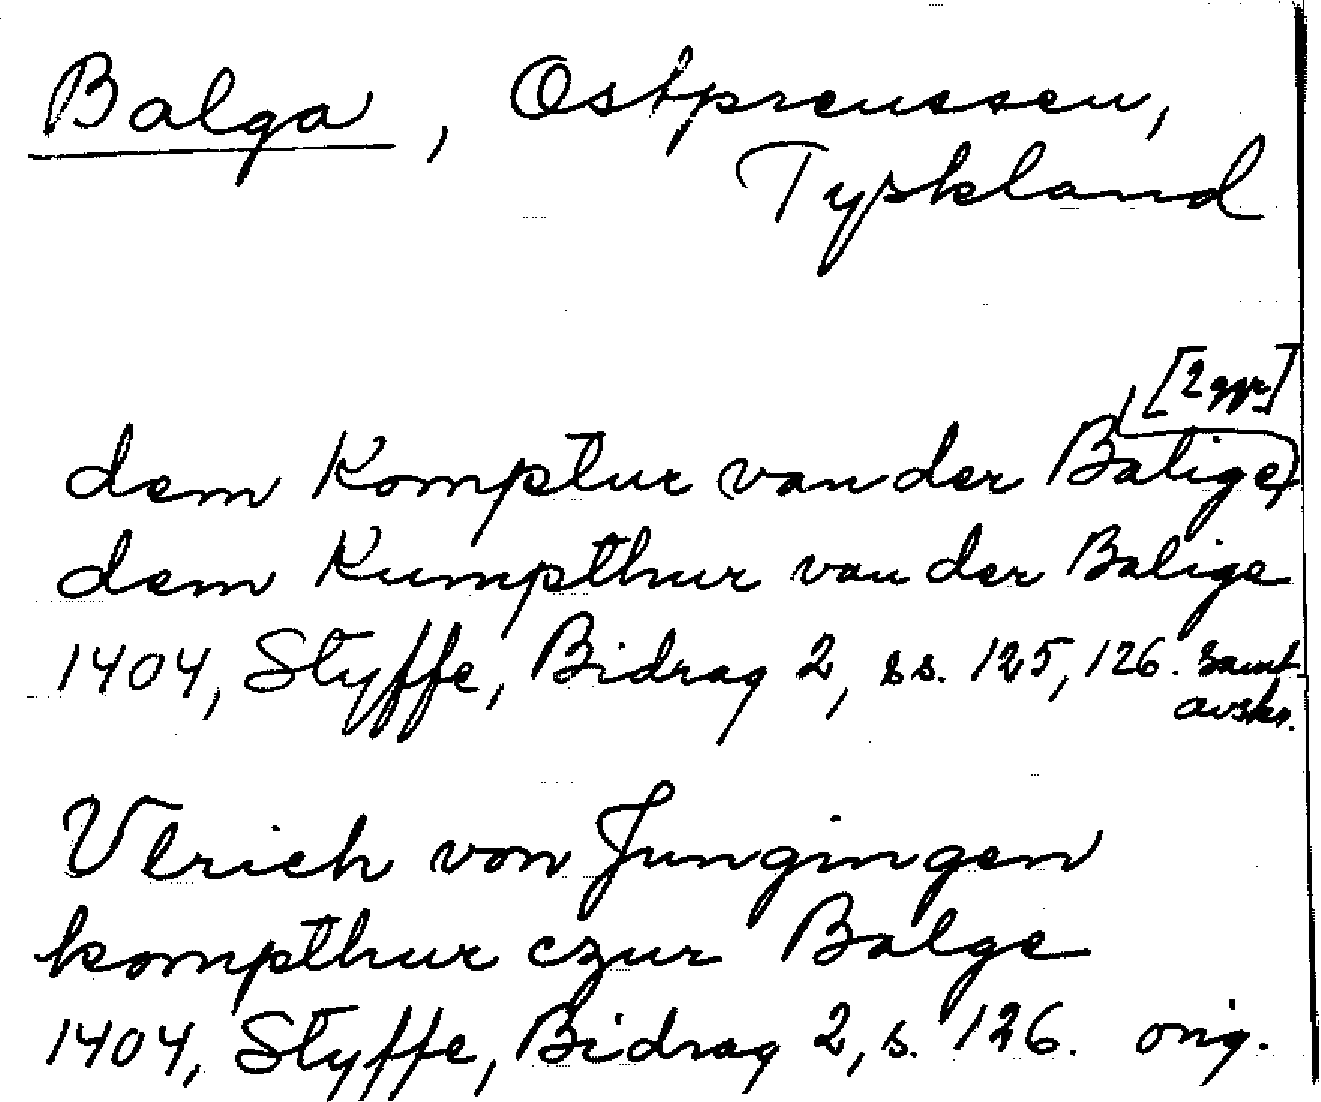 Balga, Ostpreussen,
Tyskland
[2 ggr]
dem Komptur van der Balige,
dem Kumpthur van der Balige
1404, Styffe, Bidrag 2, ss. 125, 126. Samt.
avskr.
Vlrich von Jungingen
kompthur czur Balge
1404, Styffe, Bidrag 2, s. 126. orig.